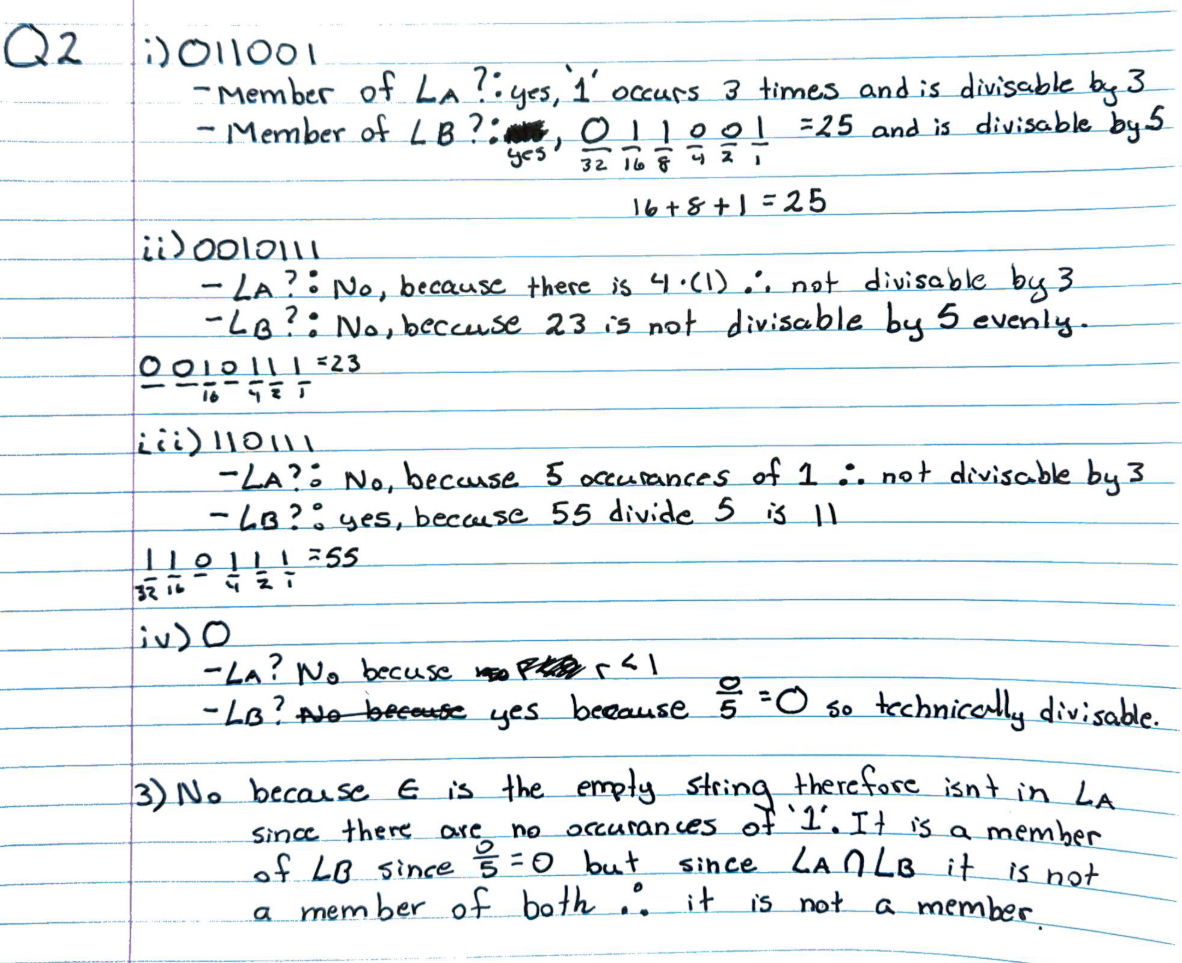 Q2 i) 011001
- Member of LA?: yes, '1' occurs 3 times and is divisable by 3
- Member of LB?: yes, 0 1 1 0 0 1 = 25 and is divisable by 5
32 16 8 4 2 1
16 + 8 + 1 = 25
ii) 0010111
- LA?: No, because there is 4·(1) ∴ not divisable by 3
- LB?: No, beccuse 23 is not divisable by 5 evenly.
0 0 1 0 1 1 1 = 23
16 4 2 1
iii) 110111
- LA?: No, because 5 occurances of 1 ∴ not divisable by 3
- LB?: yes, because 55 divide 5 is 11
1 1 0 1 1 1 = 55
32 16 4 2 1
iv) 0
- LA? No becuse r < 1
- LB? No because yes because 0/5 = 0 so technically divisable.
3) No because ε is the empty string therefore isnt in LA
since there are no occurances of '1'. It is a member
of LB since 0/5 = 0 but since LA ∩ LB it is not
a member of both ∴ it is not a member.